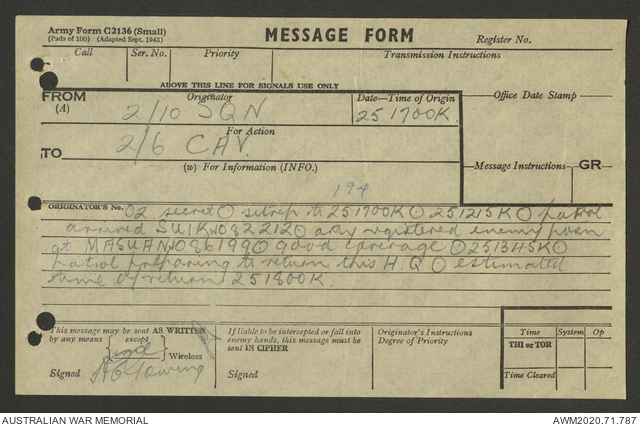 Army Form C2136 (Small)
(Pads of 100) (Adapted Sept. 1943)
MESSAGE FORM
Register No.
Call
Ser. No.
Priority
Transmission Instructions
ABOVE THIS LINE FOR SIGNALS USE ONLY
FROM
(A)
Originator
2/10 SQN
Date—Time of Origin
251700K
Office Date Stamp
For Action
TO
2/6 CAV
(w) For Information (INFO.)
Message Instructions
GR
194
ORIGINATOR'S No.
O2 secret O sitrep to 251700K O 251215K O patrol
arrived SUIKW 082212 O arty registered enemy posn
at MASUAN 086199 O good coverage O 251345K O
patrol preparing to return this H.Q O estimated
time of return 251800K
This message may be sent AS WRITTEN
by any means
except
Wireless
sgd
Signed
If liable to be intercepted or fall into
enemy hands, this message must be
sent IN CIPHER
Signed
Originator's Instructions
Degree of Priority
Time
System
Op
THI or TOR
Time Cleared
AUSTRALIAN WAR MEMORIAL
AWM2020.71.787